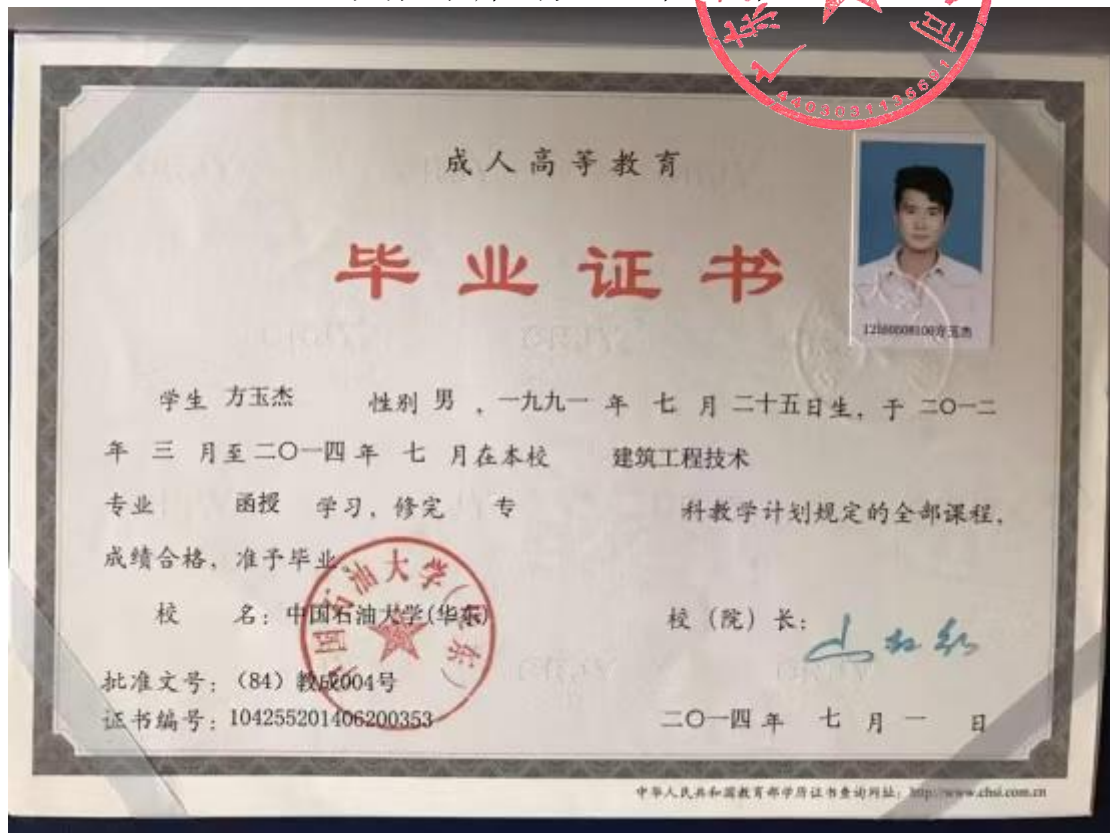 成人高等教育
毕业证书
12160608100方玉杰
学生 方玉杰 性别 男 ，一九九一 年 七 月 二十五日生，于 二〇一二
年 三 月至二〇一四 年 七 月在本校 建筑工程技术
专业 函授 学习，修完 专 科教学计划规定的全部课程，
成绩合格，准予毕业
中国石油大学(华东)
校 名：中国石油大学(华东) 校（院）长：
批准文号：（84）教成004号
证书编号：104255201406200353 二〇一四 年 七 月 一 日
中华人民共和国教育部学历证书查询网址：http://www.chsi.com.cn